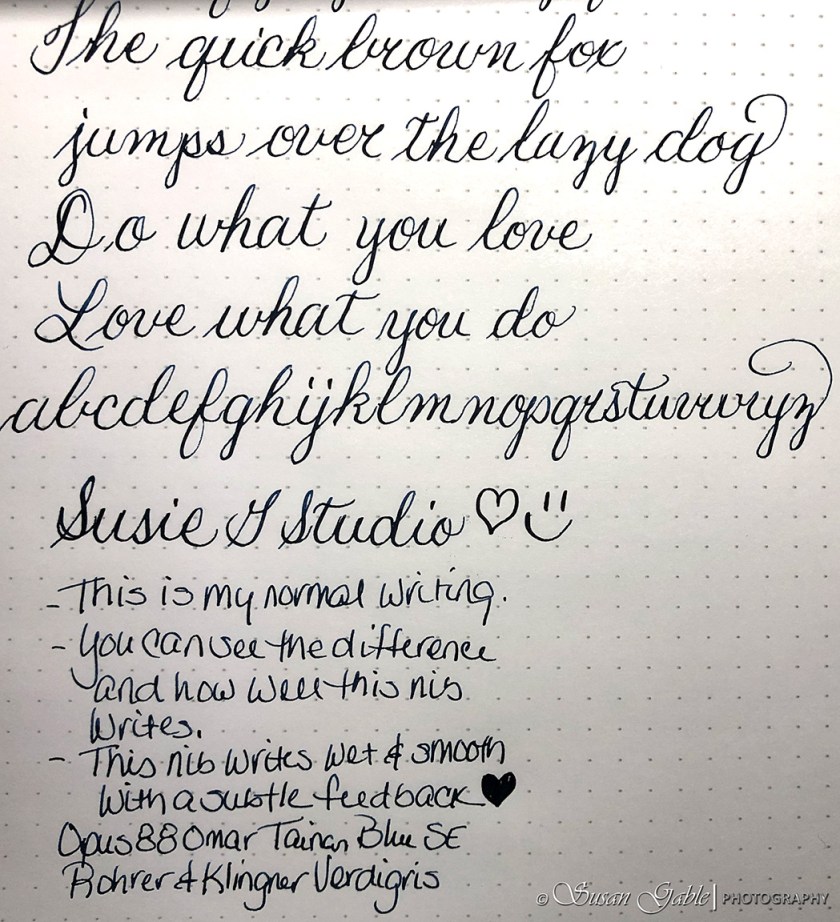 The quick brown fox
jumps over the lazy dog
Do what you love
Love what you do
abcdefghijklmnopqrstuvwxyz
Susie G Studio
- This is my normal writing.
- You can see the difference
and how well this nib
writes.
- This nib writes wet & smooth
with a subtle feedback
Opus 88 Omar Tainan Blue SE
Rohrer & Klingner Verdigris
© Susan Gable | PHOTOGRAPHY